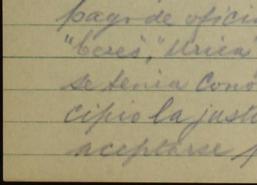 pago de ofici
"beres," única
se tenía cono
cipio la just
aceptarse p